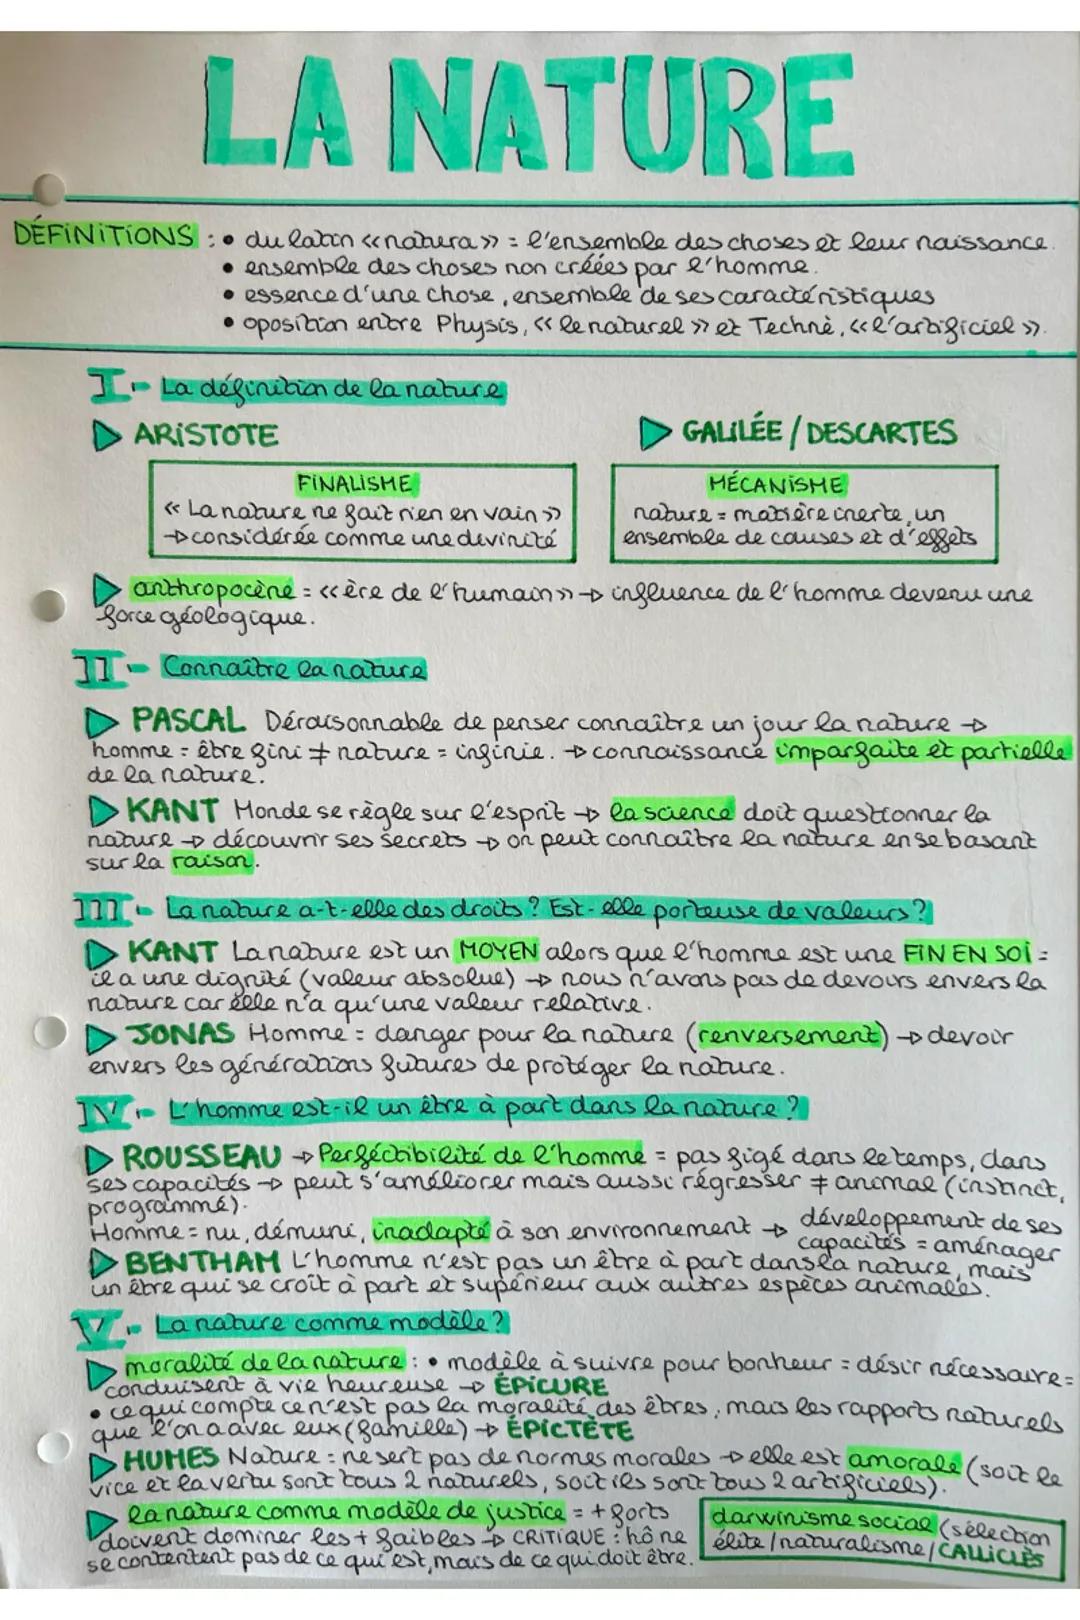 LA NATURE
DÉFINITIONS : • du latin «natura» = l'ensemble des choses et leur naissance.
• ensemble des choses non créées par l'homme.
• essence d'une chose, ensemble de ses caractéristiques
• oposition entre Physis, «le naturel» et Technè, «l'artificiel».
I - La définition de la nature
▷ ARISTOTE
▷ GALILÉE / DESCARTES
FINALISME
« La nature ne fait rien en vain »
→ considérée comme une divinité
MÉCANISME
nature = matière inerte, un
ensemble de causes et d'effets
▷ anthropocène = «ère de l'humain» → influence de l'homme devenu une
force géologique.
II - Connaître la nature
▷ PASCAL Déraisonnable de penser connaître un jour la nature →
homme = être fini ≠ nature = infinie. → connaissance imparfaite et partielle
de la nature.
▷ KANT Monde se règle sur l'esprit → la science doit questionner la
nature → découvrir ses secrets → on peut connaître la nature en se basant
sur la raison.
III - La nature a-t-elle des droits ? Est-elle porteuse de valeurs ?
▷ KANT La nature est un MOYEN alors que l'homme est une FIN EN SOI =
il a une dignité (valeur absolue) → nous n'avons pas de devoirs envers la
nature car elle n'a qu'une valeur relative.
▷ JONAS Homme = danger pour la nature (renversement) → devoir
envers les générations futures de protéger la nature.
IV - L'homme est-il un être à part dans la nature ?
▷ ROUSSEAU → Perféctibilité de l'homme = pas figé dans le temps, dans
ses capacités → peut s'améliorer mais aussi régresser ≠ animal (instinct,
programmé).
Homme = nu, démuni, inadapté à son environnement → développement de ses
capacités = aménager
▷ BENTHAM L'homme n'est pas un être à part dans la nature, mais
un être qui se croît à part et supérieur aux autres espèces animales.
V - La nature comme modèle ?
▷ moralité de la nature : • modèle à suivre pour bonheur = désir nécessaire =
conduisent à vie heureuse → ÉPICURE
• ce qui compte ce n'est pas la moralité des êtres, mais les rapports naturels
que l'on a avec eux (famille) → ÉPICTÈTE
▷ HUMES Nature : ne sert pas de normes morales → elle est amorale (soit le
vice et la vertu sont tous 2 naturels, soit ils sont tous 2 artificiels).
▷ la nature comme modèle de justice = + forts
doivent dominer les + faibles → CRITIQUE : hô ne
se contentent pas de ce qui est, mais de ce qui doit être.
darwinisme social (sélection
élite / naturalisme / CALLICLÈS